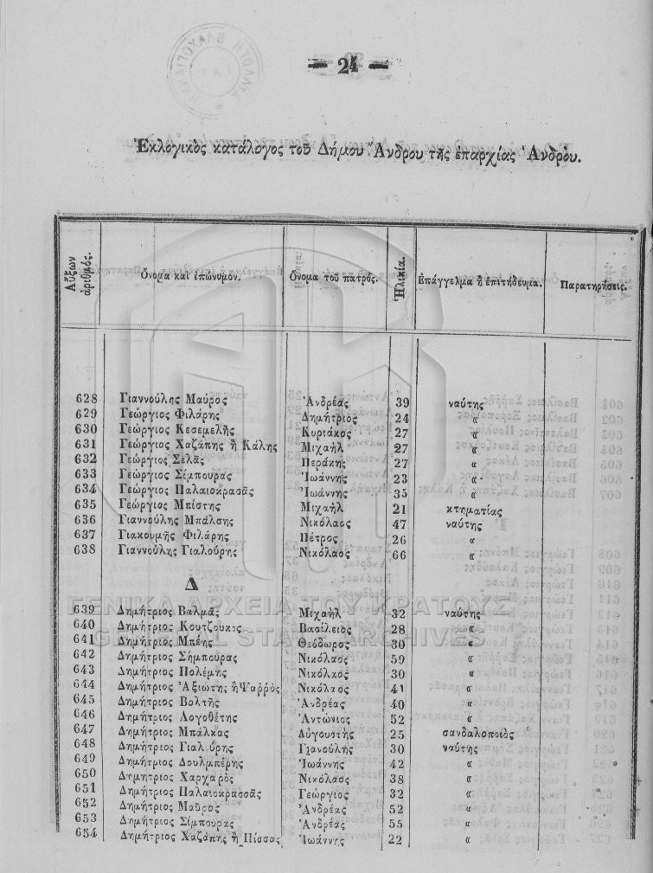 — 24 —
Ἐκλογικὸς κατάλογος τοῦ Δήμου Ἄνδρου τῆς ἐπαρχίας Ἄνδρου.
Αὔξων ἀριθμός. Ὄνομα καὶ ἐπώνυμον. Ὄνομα τοῦ πατρός. Ἡλικία. Ἐπάγγελμα ἢ ἐπιτήδευμα. Παρατηρήσεις.
628 Γιαννούλης Μαῦρος Ἀνδρέας 39 ναύτης
629 Γεώργιος Φιλάρης Δημήτριος 24 «
630 Γεώργιος Κεσεμελῆς Κυριάκος 27 «
631 Γεώργιος Χαζάπης ἢ Κάλης Μιχαὴλ 27 «
632 Γεώργιος Σελᾶς Περάκης 27 «
633 Γεώργιος Σίμπουρας Ἰωάννης 23 «
634 Γεώργιος Παλαιοκρασᾶς Ἰωάννης 35 «
635 Γεώργιος Μπίστης Μιχαὴλ 21 κτηματίας
636 Γιαννούλης Μπάλσης Νικόλαος 47 ναύτης
637 Γιακουμῆς Φιλάρης Πέτρος 26 «
638 Γιαννούλης Γιαλούρης Νικόλαος 66 «
Δ
639 Δημήτριος Βαλμᾶς Μιχαὴλ 32 ναύτης
640 Δημήτριος Κουτζουκις Βασίλειος 28 «
641 Δημήτριος Μπένης Θεόδωρος 30 «
642 Δημήτριος Σήμπουρας Νικόλαος 59 «
643 Δημήτριος Πολέμης Νικόλαος 30 «
644 Δημήτριος Ἀξιώτης ἢ Ψαρρὸς Νικόλαος 41 «
645 Δημήτριος Βαλτῆς Ἀνδρέας 40 «
646 Δημήτριος Λογοθέτης Ἀντώνιος 52 «
647 Δημήτριος Μπάλκας Αὐγουστῆς 25 σανδαλοποιὸς
648 Δημήτριος Γιαλ ύρης Γιανούλης 30 ναύτης
649 Δημήτριος Δουλμπέρης Ἰωάννης 42 «
650 Δημήτριος Χαρχαρὸς Νικόλαος 38 «
651 Δημήτριος Παλαιοκρασσᾶς Γεώργιος 32 «
652 Δημήτριος Μαῦρος Ἀνδρέας 52 «
653 Δημήτριος Σίμπουρας Ἀνδρέας 55 «
654 Δημήτριος Χαζάπης ἢ Πίσσας Ἰωάννης 22 «
ΓΕΝΙΚΑ ΑΡΧΕΙΑ ΤΟΥ ΚΡΑΤΟΥΣ
GENERAL STATE ARCHIVES